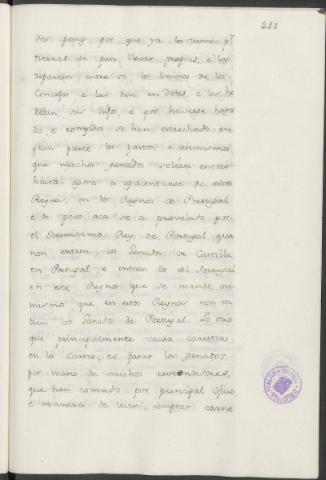 222
der poner, por que ya los tienen pr
tierras de pan llevar propias, e las
reparten entre si los vecinos de los
Concejos e las dan en Dotes, e las he
redan sus hijos, e por haverse hara
do e rompido, se han estrechado en
gran parte los pastos, e asimismo
que muchos ganados solian entrar
hasta agora à apacentarse de estos
Reynos, en los Reynos de Portugal
e de poco aca se a proveindo por
el Serenisimo Rey de Portugal, que
non entren los Ganados de Castilla
en Portugal, e entren los del Portugal
en este Reyno que se mande asi
mismo que en estos Reynos non en
tren los Ganados de Portugal. Lo otro
que principalmente causa carestias
en la Carne, es pasar los Ganados
por mano de muchos revendedores,
que han tomado por principal oficio
e manera de vivir, comprar carne